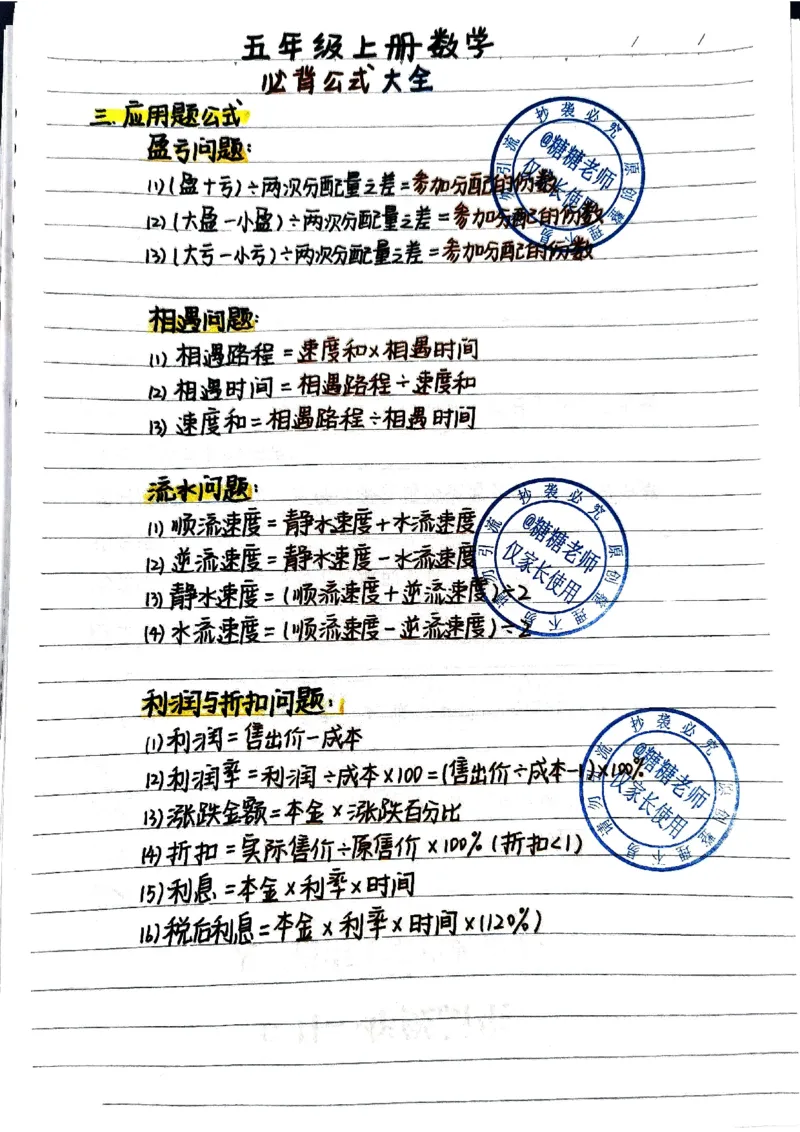 五年级上册数学
必背公式大全
三、应用题公式
盈亏问题:
(1)(盈+亏)÷两次分配量之差=参加分配的份数
(2)(大盈-小盈)÷两次分配量之差=参加分配的份数
(3)(大亏-小亏)÷两次分配量之差=参加分配的份数
相遇问题:
(1)相遇路程=速度和×相遇时间
(2)相遇时间=相遇路程÷速度和
(3)速度和=相遇路程÷相遇时间
流水问题:
(1)顺流速度=静水速度+水流速度
(2)逆流速度=静水速度-水流速度
(3)静水速度=(顺流速度+逆流速度)÷2
(4)水流速度=(顺流速度-逆流速度)÷2
利润与折扣问题:
(1)利润=售出价-成本
(2)利润率=利润÷成本×100=(售出价÷成本-1)×100%
(3)涨跌金额=本金×涨跌百分比
(4)折扣=实际售价÷原售价×100%(折扣<1)
(5)利息=本金×利率×时间
(6)税后利息=本金×利率×时间×(120%)
抄袭必究 原创整理不易 请勿引流
@糖糖老师
仅家长使用
抄袭必究 原创整理不易 请勿引流
@糖糖老师
仅家长使用
抄袭必究 原创整理不易 请勿引流
@糖糖老师
仅家长使用